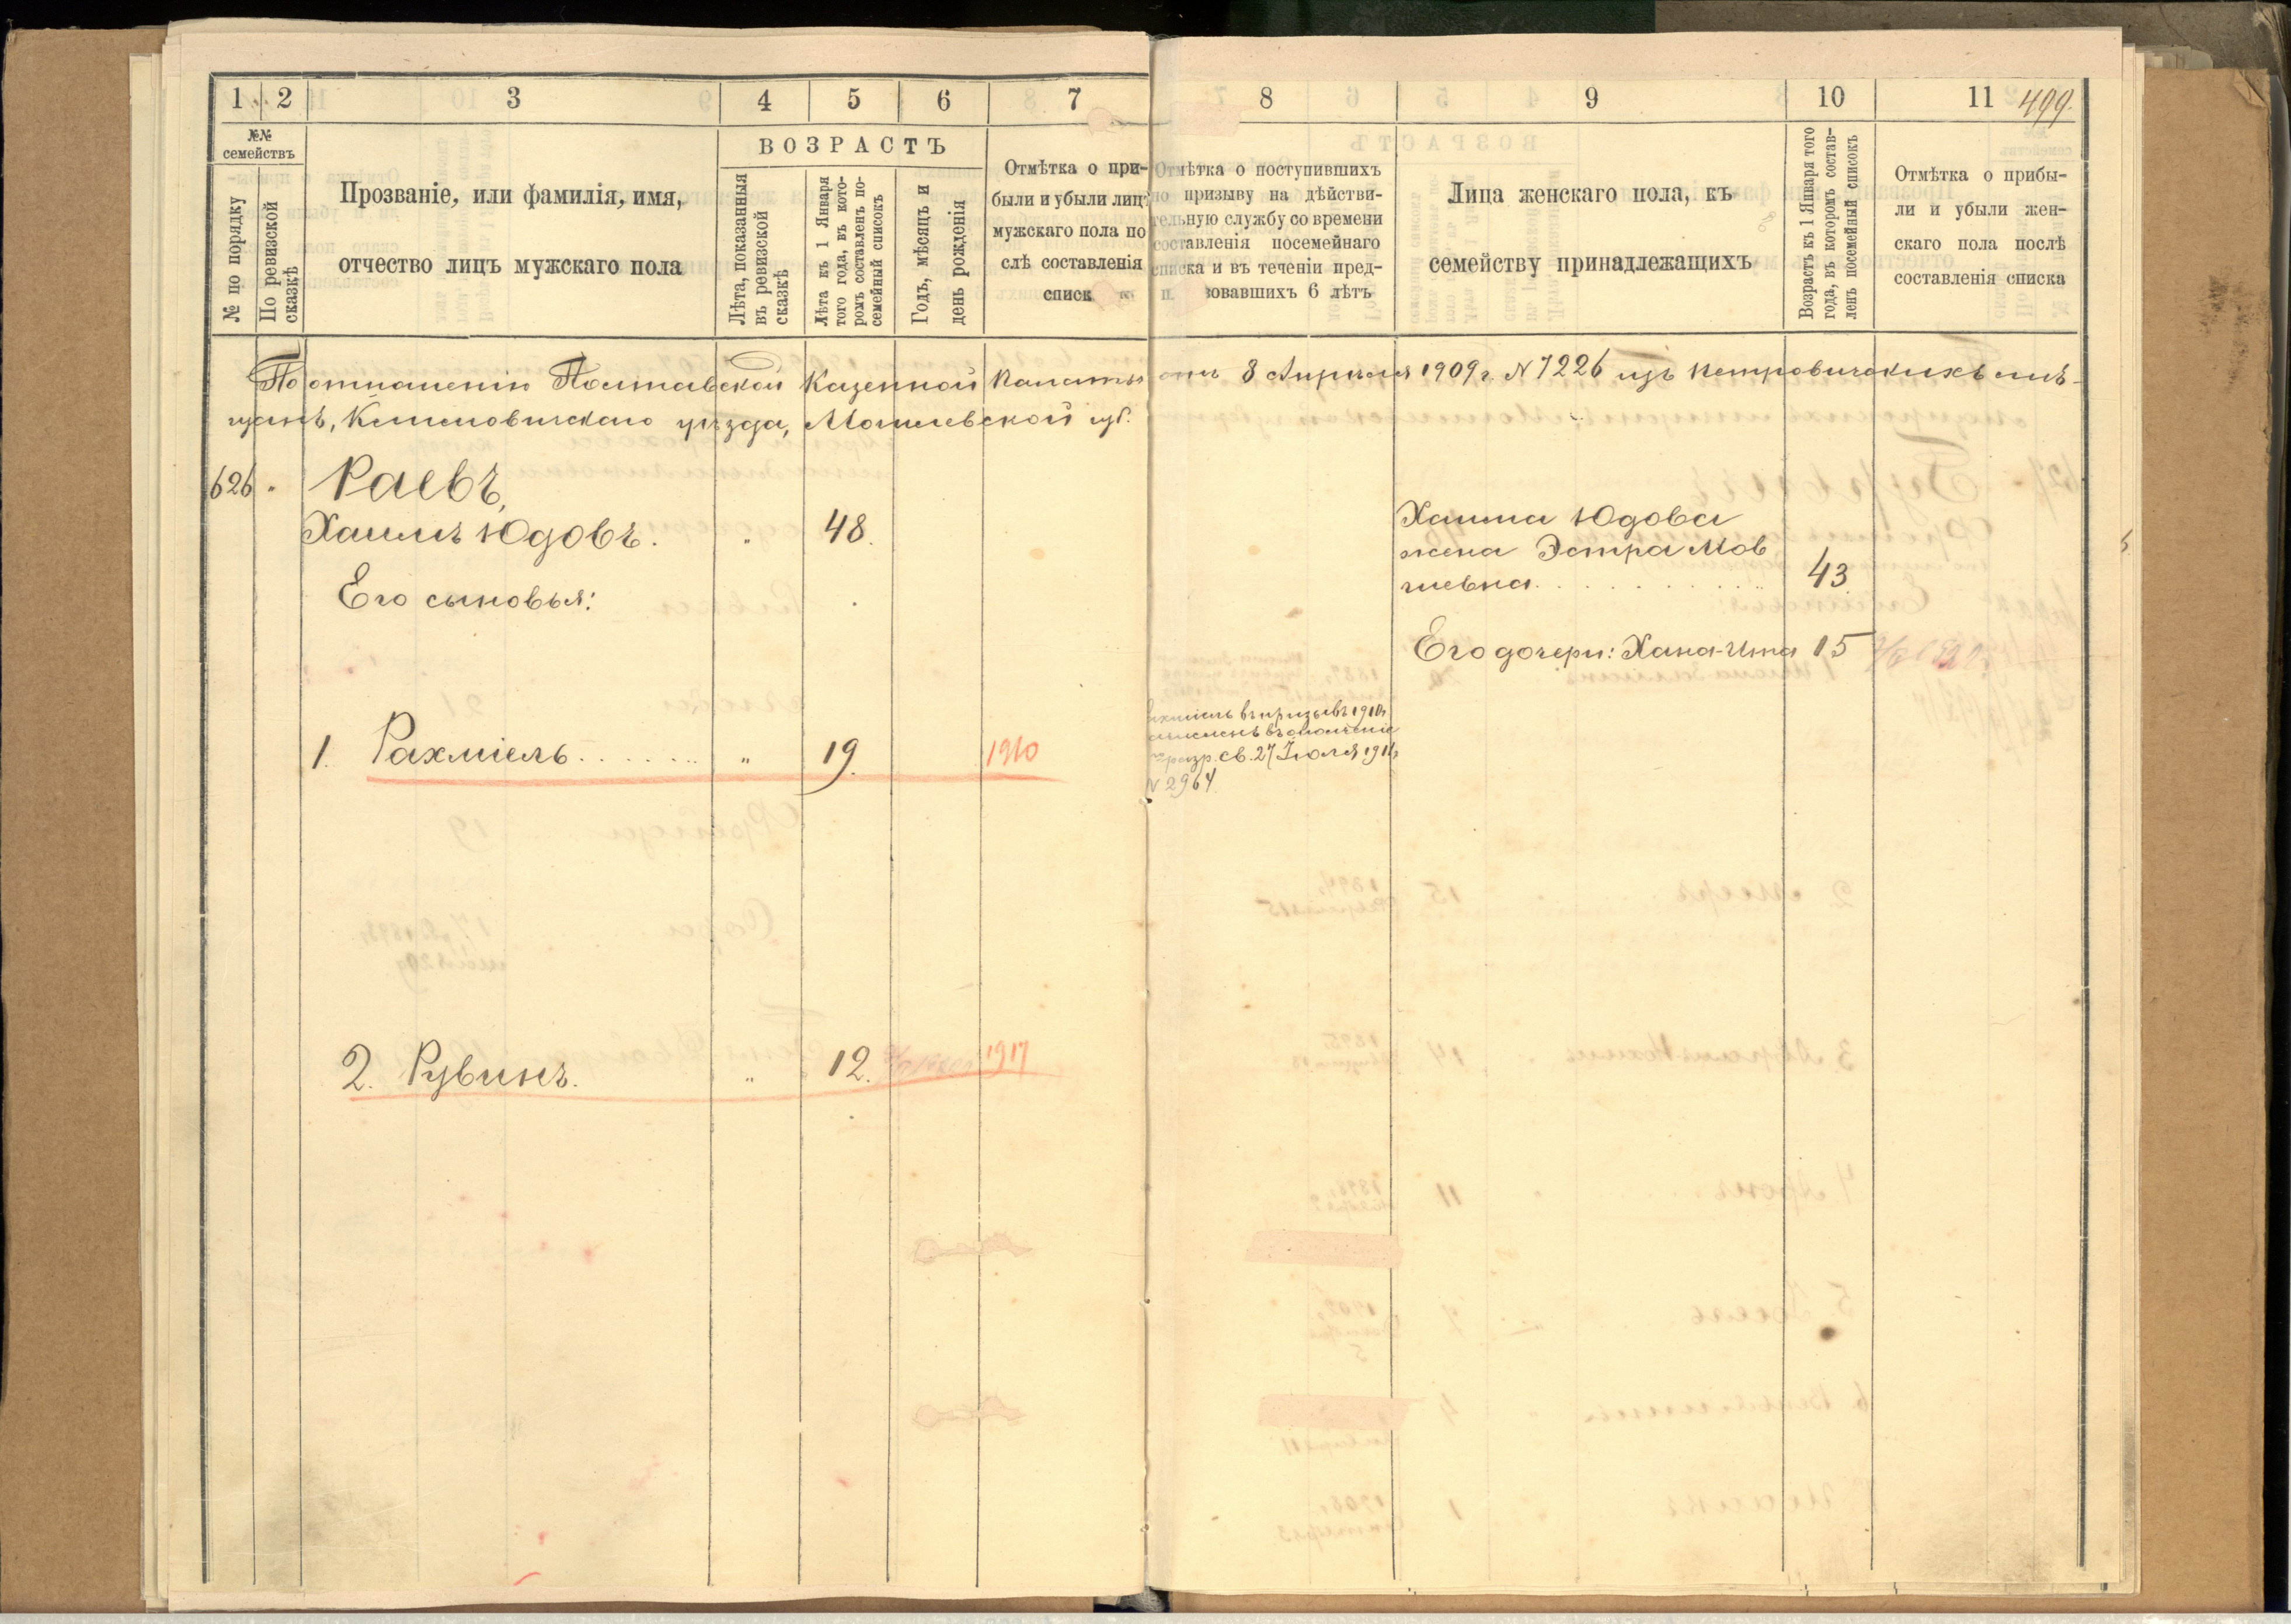 1 2 3 4 5 6 7 8 9 10 11 499.
№№ семействъ
№ по порядку
По ревизской сказкѣ
Прозваніе, или фамилія, имя,
отчество лицъ мужскаго пола
ВОЗРАСТЪ
Лѣта, показанныя
въ ревизской
сказкѣ
Лѣта къ 1 Января
того года, въ кото-
ромъ составленъ по-
семейный списокъ
Годъ, мѣсяцъ и
день рожденія
Отмѣтка о при-
были и убыли лицъ
мужскаго пола по
слѣ составленія
списк
Отмѣтка о поступившихъ
по призыву на дѣйстви-
тельную службу со времени
составленія посемейнаго
списка и въ теченіи пред-
зовавшихъ 6 лѣтъ
Лица женскаго пола, къ
семейству принадлежащихъ
Возрастъ къ 1 Января того
года, въ которомъ состав-
ленъ посемейный списокъ
Отмѣтка о прибы-
ли и убыли жен-
скаго пола послѣ
составленія списка
По отношенію Полтавской Казенной Палаты отъ 8 Апрѣля 1909 г. N 7226 изъ Петровичскихъ мѣ-
щанъ, Климовичскаго уѣзда, Могилевской губ.
626 Раевъ,
Хаимъ Юдовъ. " 48.
Его сыновья:
Хаима Юдова
жена Эстра Мов
шевна 43
Его дочери: Хана-Ита 15
1. Рахміель " 19. 1910
призывъ 1910 г.
въ ополченіе
разр. св. 27 Іюля 1911 г.
N 2964.
2. Рувинъ. " 12. 1917